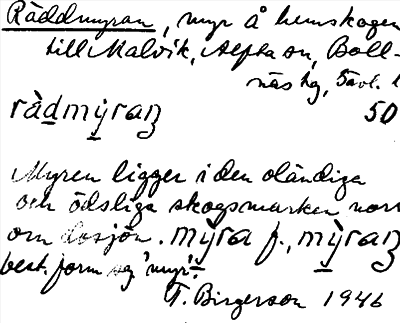 Räddmyran, myr å hemskogen
till Malvik, Alfta sn, Boll-
näs tg, Sävl. l
ràdmỳraꞑ 50
Myren ligger i den oländiga
och ödsliga skogsmarken norr
om losjön. mỳra f., mỳraꞑ
best. form sg 'myr'.
T. Birgerson 1946